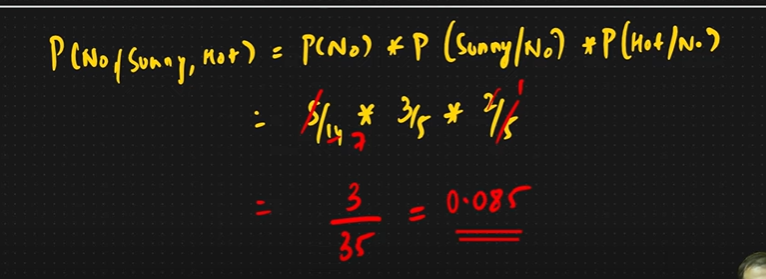 P(No/Sunny, Hot) = P(No) * P(Sunny/No) * P(Hot/No)
= 5/14 7 * 3/5 * 2/5 1
= 3/35 = 0.085